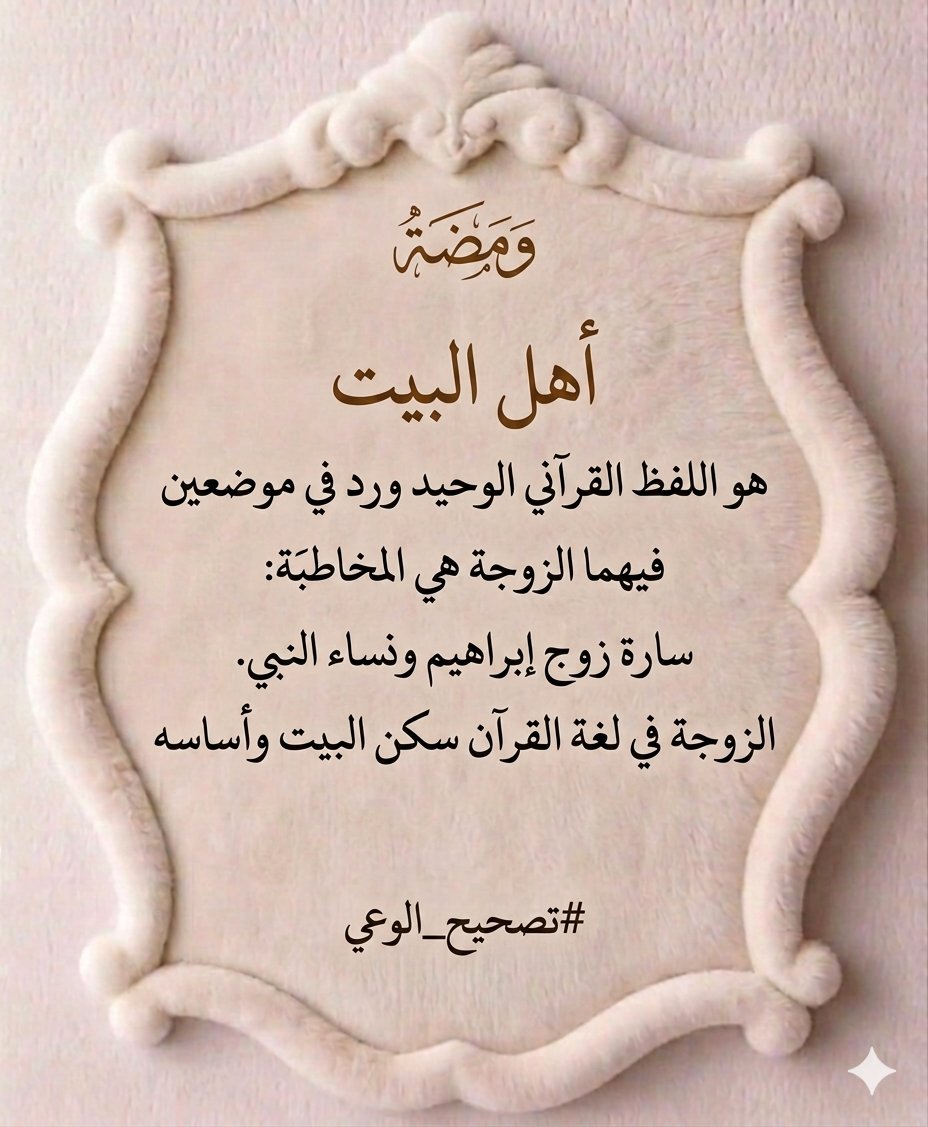 وَمَضَةٌ
أهل البيت
هو اللفظ القرآني الوحيد ورد في موضعين
فيهما الزوجة هي المخاطبَة:
سارة زوج إبراهيم ونساء النبي.
الزوجة في لغة القرآن سكن البيت وأساسه
#تصحيح_الوعي